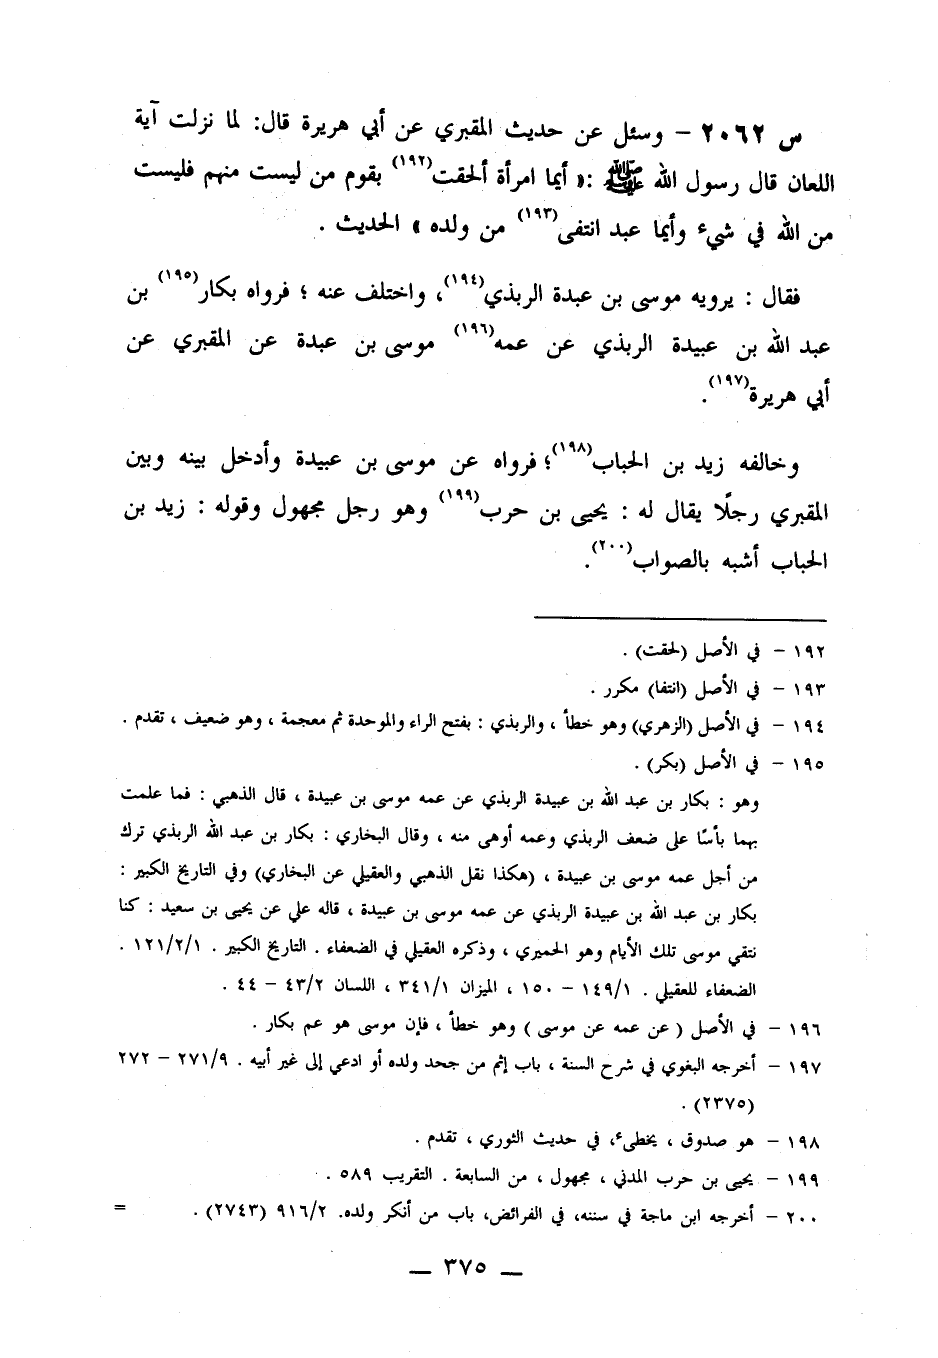 س ٢٠٦٢ – وسئل عن حديث المقبري عن أبي هريرة قال: لما نزلت آية
اللعان قال رسول الله ﷺ :« أيما امرأة ألحقت(١٩٢) بقوم من ليست منهم فليست
من الله في شيء وأيما عبد انتفى(١٩٣) من ولده » الحديث .
فقال : يرويه موسى بن عبدة الربذي(١٩٤)، واختلف عنه ؛ فرواه بكار(١٩٥) بن
عبد الله بن عبيدة الربذي عن عمه(١٩٦) موسى بن عبدة عن المقبري عن
أبي هريرة(١٩٧).
وخالفه زيد بن الحباب(١٩٨)؛ فرواه عن موسى بن عبيدة وأدخل بينه وبين
المقبري رجلًا يقال له : يحيى بن حرب(١٩٩) وهو رجل مجهول وقوله : زيد بن
الحباب أشبه بالصواب(٢٠٠).
١٩٢ – في الأصل (لحقت) .
١٩٣ – في الأصل (انتفا) مكرر .
١٩٤ – في الأصل (الزهري) وهو خطأ ، والربذي : بفتح الراء والموحدة ثم معجمة ، وهو ضعيف ، تقدم .
١٩٥ – في الأصل (بكر) .
وهو : بكار بن عبد الله بن عبيدة الربذي عن عمه موسى بن عبيدة ، قال الذهبي : فما علمت
بهما بأسًا على ضعف الربذي وعمه أوهى منه ، وقال البخاري : بكار بن عبد الله الربذي ترك
من أجل عمه موسى بن عبيدة ، (هكذا نقل الذهبي والعقيلي عن البخاري) وفي التاريخ الكبير :
بكار بن عبد الله بن عبيدة الربذي عن عمه موسى بن عبيدة ، قاله علي عن يحيى بن سعيد : كنا
نتقي موسى تلك الأيام وهو الحميري ، وذكره العقيلي في الضعفاء . التاريخ الكبير . ١٢١/٢/١ .
الضعفاء للعقيلي . ١٤٩/١ – ١٥٠ ، الميزان ٣٤١/١ ، اللسان ٤٣/٢ – ٤٤ .
١٩٦ – في الأصل ( عن عمه عن موسى ) وهو خطأ ، فإن موسى هو عم بكار .
١٩٧ – أخرجه البغوي في شرح السنة ، باب إثم من جحد ولده أو ادعي إلى غير أبيه . ٢٧١/٩ – ٢٧٢
(٢٣٧٥) .
١٩٨ – هو صدوق ، يخطىء، في حديث الثوري ، تقدم .
١٩٩ – يحيى بن حرب المدني ، مجهول ، من السابعة . التقريب ٥٨٩ .
٢٠٠ – أخرجه ابن ماجة في سننه، في الفرائض، باب من أنكر ولده. ٩١٦/٢ (٢٧٤٣) . =
— ٣٧٥ —